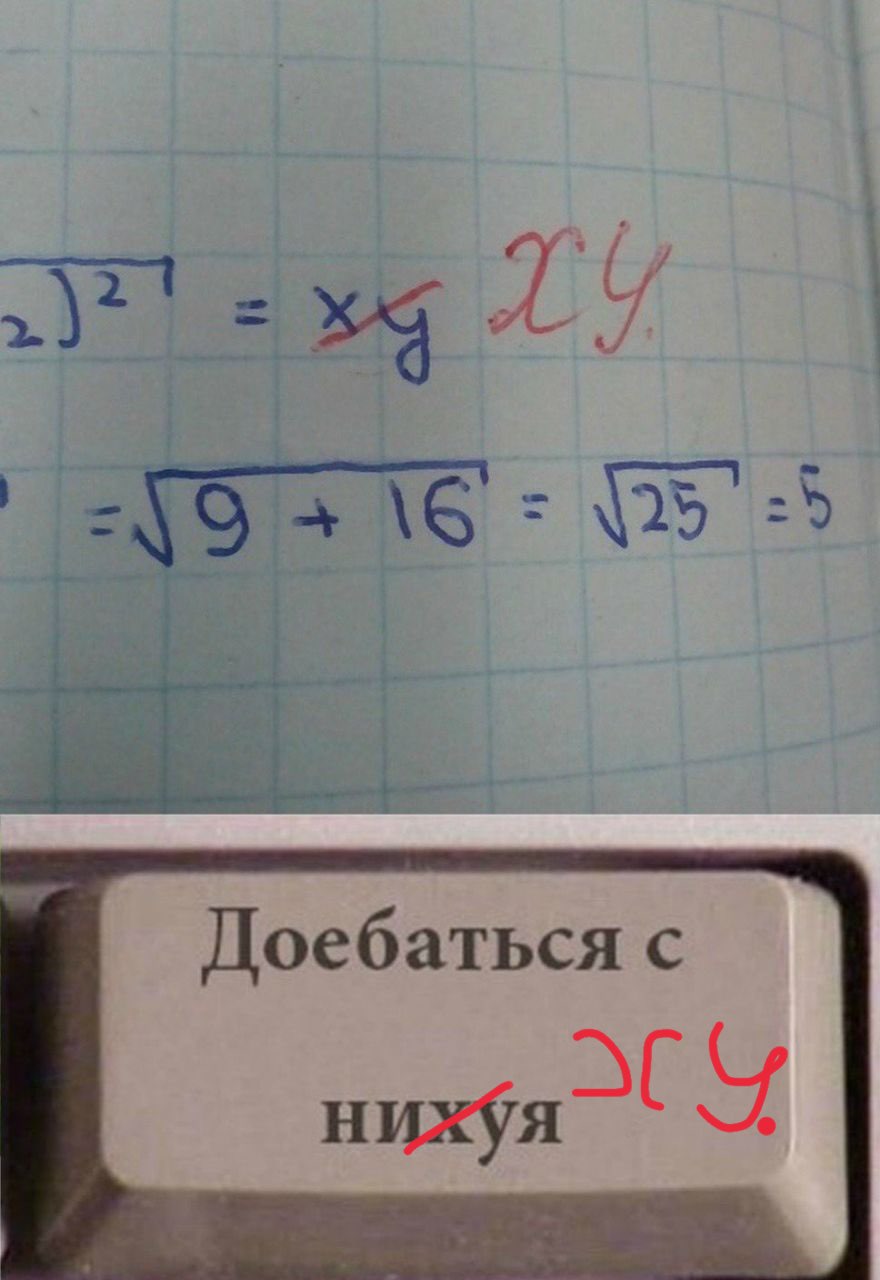 2)² = xy xy.
= √9 + 16 = √25 = 5
Доебаться с
нихуя ху.